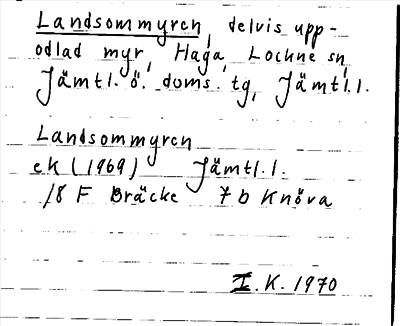 Landsommyren, delvis upp-
odlad myr, Haga, Lockne sn,
Jämtl. ö. doms. tg, Jämtl. l.
Landsommyren
ek (1969) Jämtl. l.
18 F Bräcke 7 b Knöva
I. K. 1970